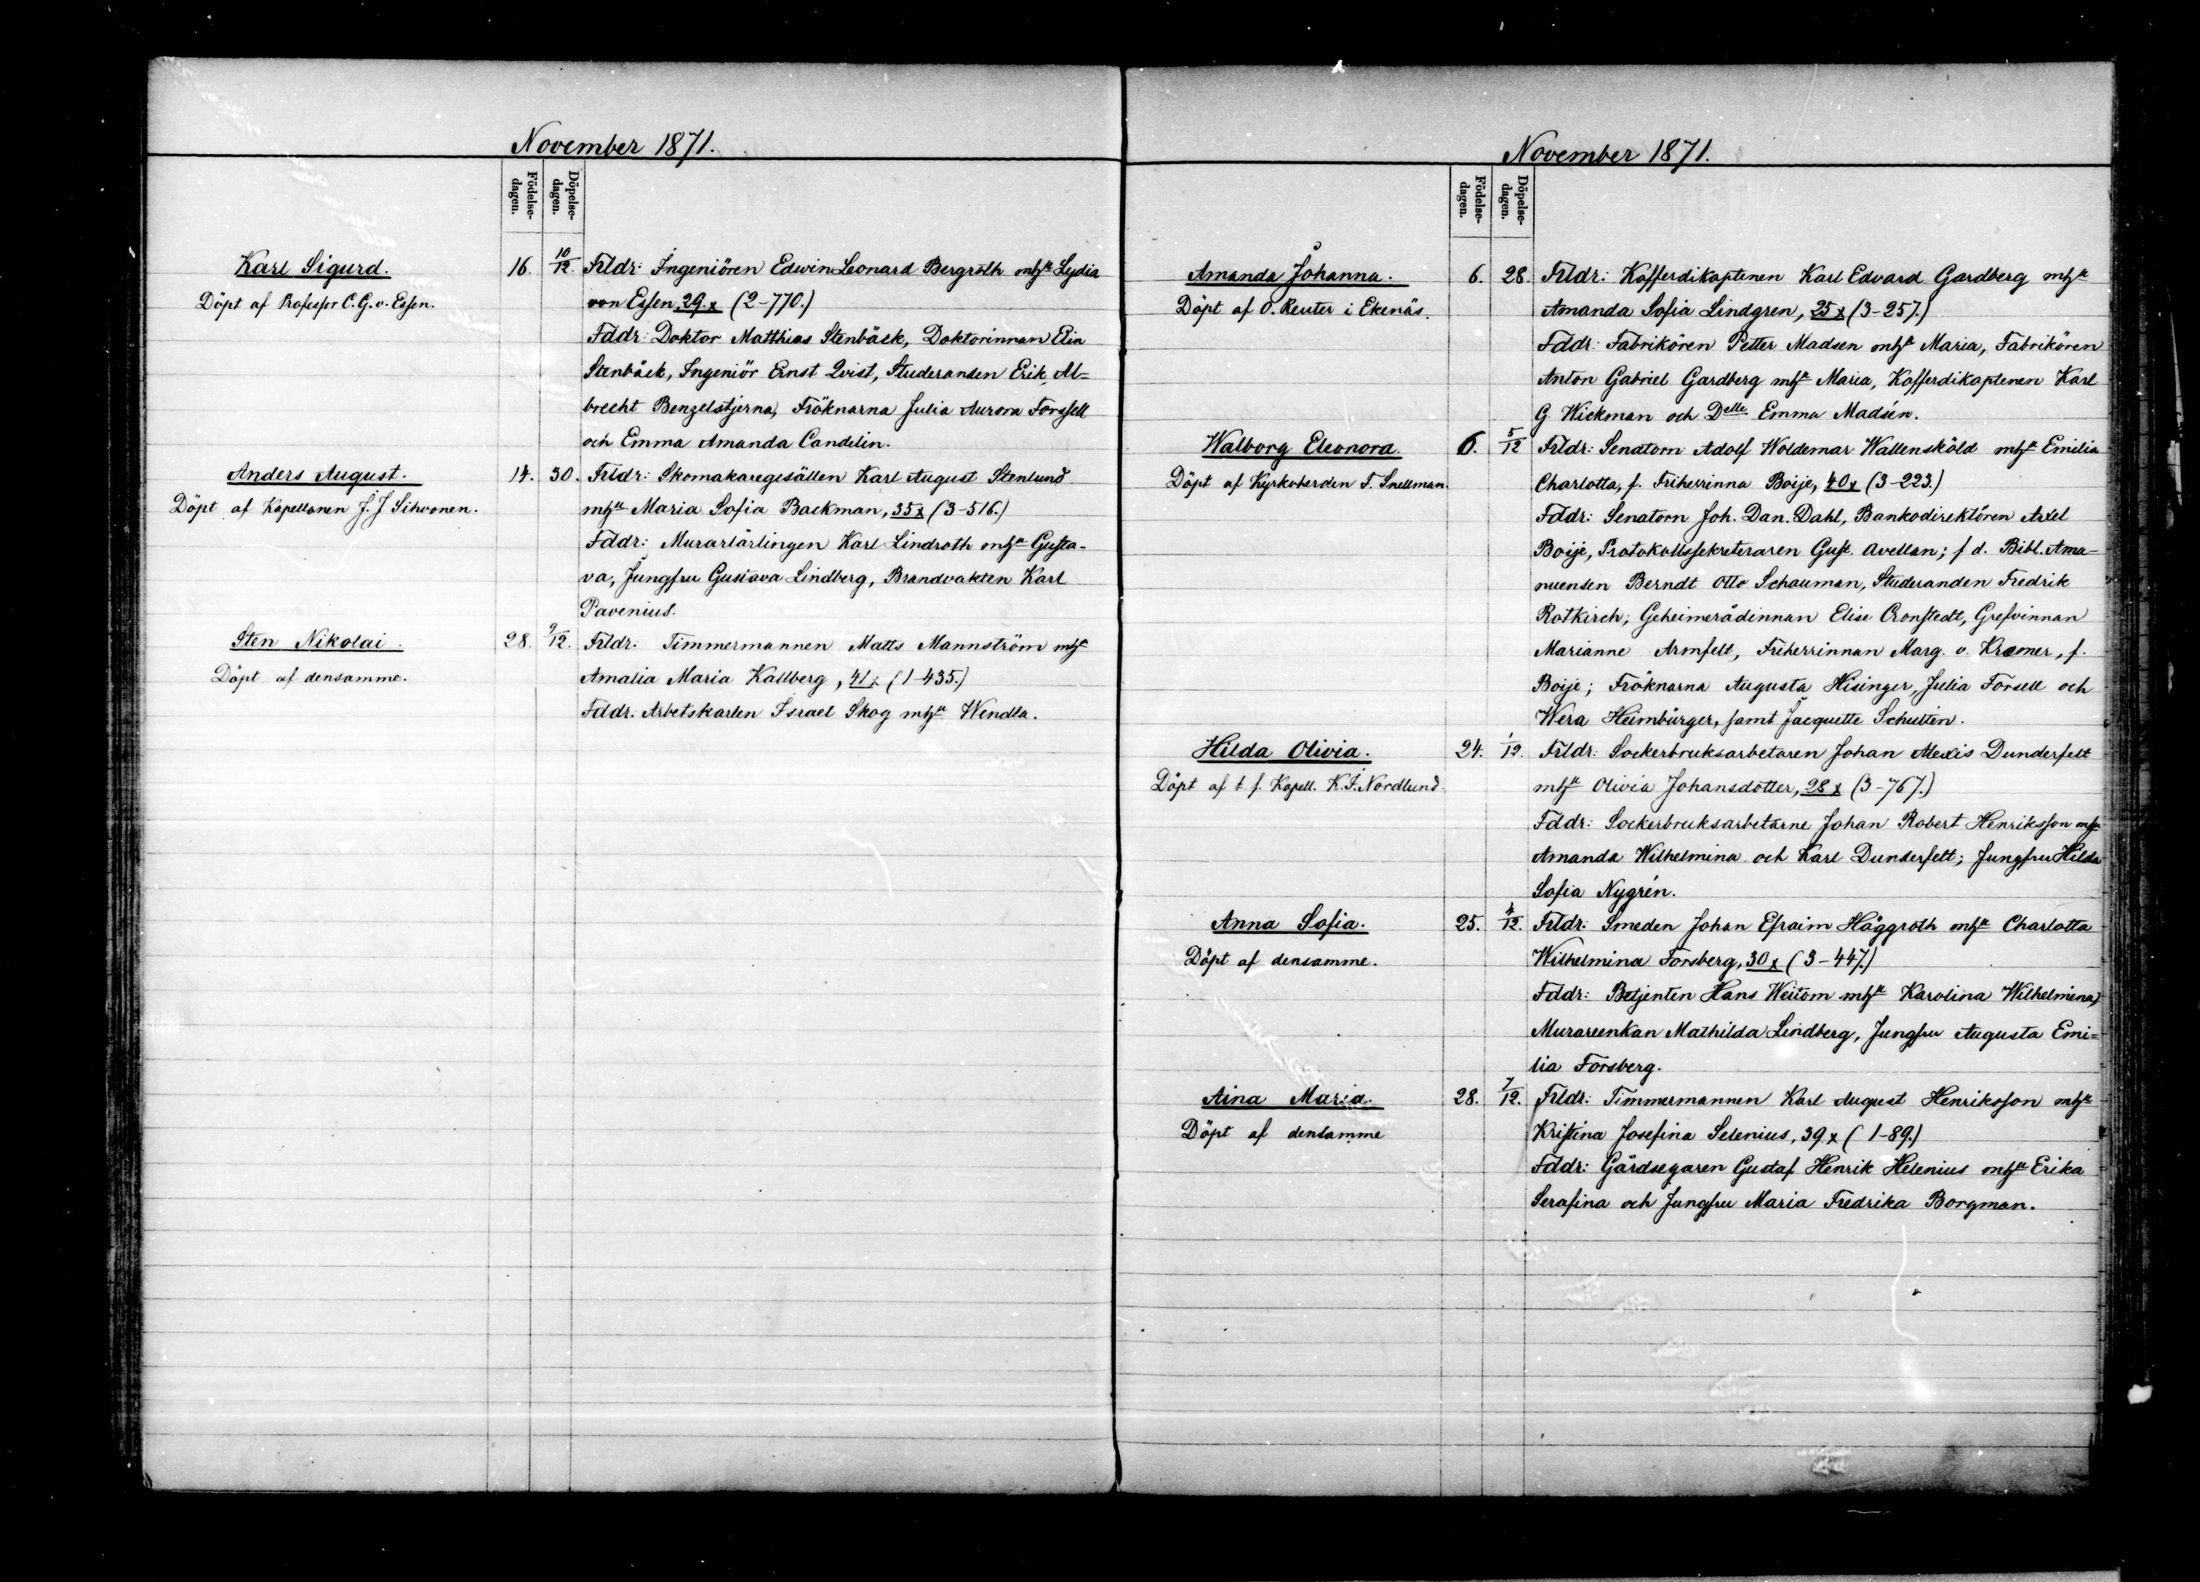 November 1871.
Födelse-
dagen.
Döpelse-
dagen.
Karl Sigurd.
16.
10/12.
Frldr: Ingeniören Edwin Leonard Bergroth mhu Lydia
Döpt af Professor C. G. v. Essen.
von Essen 29.x (2-770.)
Fddr: Doktor Matthias Stenbäck, Doktorinnan Elin
Stenbäck, Ingeniör Ernst Qvist, Studeranden Erik Al-
brecht Benzelstjerna, Fröknarna Julia Aurora Forssell
och Emma Amanda Candelin.
Anders August.
14.
30.
Frldr: Skomakaregesällen Karl August Stenlund
Döpt af Kapellanen J. J Sihvonen.
mhu Maria Sofia Backman, 35x (3-516.)
Fddr: Murarlärlingen Karl Lindroth mhu Gusta-
va, Jungfru Gustava Lindberg, Brandvakten Karl
Pavenius.
Sten Nikolai.
28.
9/12.
Frldr. Timmermannen Matts Mannström mhu
Döpt af densamme.
Amalia Maria Kallberg, 41x (1-435.)
Fddr. Arbetskarlen Israel Skog mhu Wendla.
November 1871.
Födelse-
dagen.
Döpelse-
dagen.
Amanda Johanna.
6.
28.
Frldr: Kofferdikaptenen Karl Edvard Gardberg mhu
Döpt af O. Reuter i Ekenäs.
Amanda Sofia Lindgren, 25x (3-257.)
Fddr: Fabrikören Petter Madsen mhu Maria, Fabrikören
Anton Gabriel Gardberg mhu Maria, Kofferdikaptenen Karl
G. Wickman och Delle Emma Madsén.
Walborg Eleonora.
6.
5/12
Frldr: Senatorn Adolf Woldemar Wallensköld mhu Emilia
Döpt af Kyrkoherden T. Snellman.
Charlotta, f. Friherrinna Boije, 40x (3-223.)
Fddr: Senatorn Joh. Dan. Dahl, Bankodirektören Axel
Boije, Protokollssekreteraren Gust. Avellan; f d. Bibl. Ama-
nuensen Berndt Otto Schauman, Studeranden Fredrik
Rotkirch; Geheimerådinnan Elise Cronstedt, Grefvinnan
Marianne Armfelt, Friherrinnan Marg. v. Kræmer, f.
Boije; Fröknarna Augusta Hisinger, Julia Forsell och
Wera Heimbürger, samt Jacquette Schultén.
Hilda Olivia.
24.
1/12.
Frldr: Sockerbruksarbetaren Johan Alexis Dunderfelt
Döpt af t. f. Kapell. K. I. Nordlund.
mhu Olivia Johansdotter, 28x (3-767.)
Fddr: Sockerbruksarbetarne Johan Robert Henriksson mhu
Amanda Wilhelmina och Karl Dunderfelt; Jungfru Hilda
Sofia Nygrén.
Anna Sofia.
25.
4/12.
Frldr: Smeden Johan Efraim Häggroth mhu Charlotta
Döpt af densamme.
Wilhelmina Forsberg, 30x (3-447.)
Fddr: Betjenten Hans mhu Karolina Wilhelmina,
Murareenkan Mathilda Lindberg, Jungfru Augusta Emi-
lia Forsberg.
Aina Maria.
28.
7/12.
Frldr: Timmermannen Karl August Henriksson mhu
Döpt af densamme
Kristina Josefina Selenius, 39x (1-89.)
Fddr: Gårdsegaren Gustaf Henrik Helenius mhu Erika
Serafina och Jungfru Maria Fredrika Borgman.